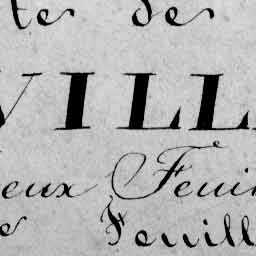 te de
VILL
eux Feui
e Feuill